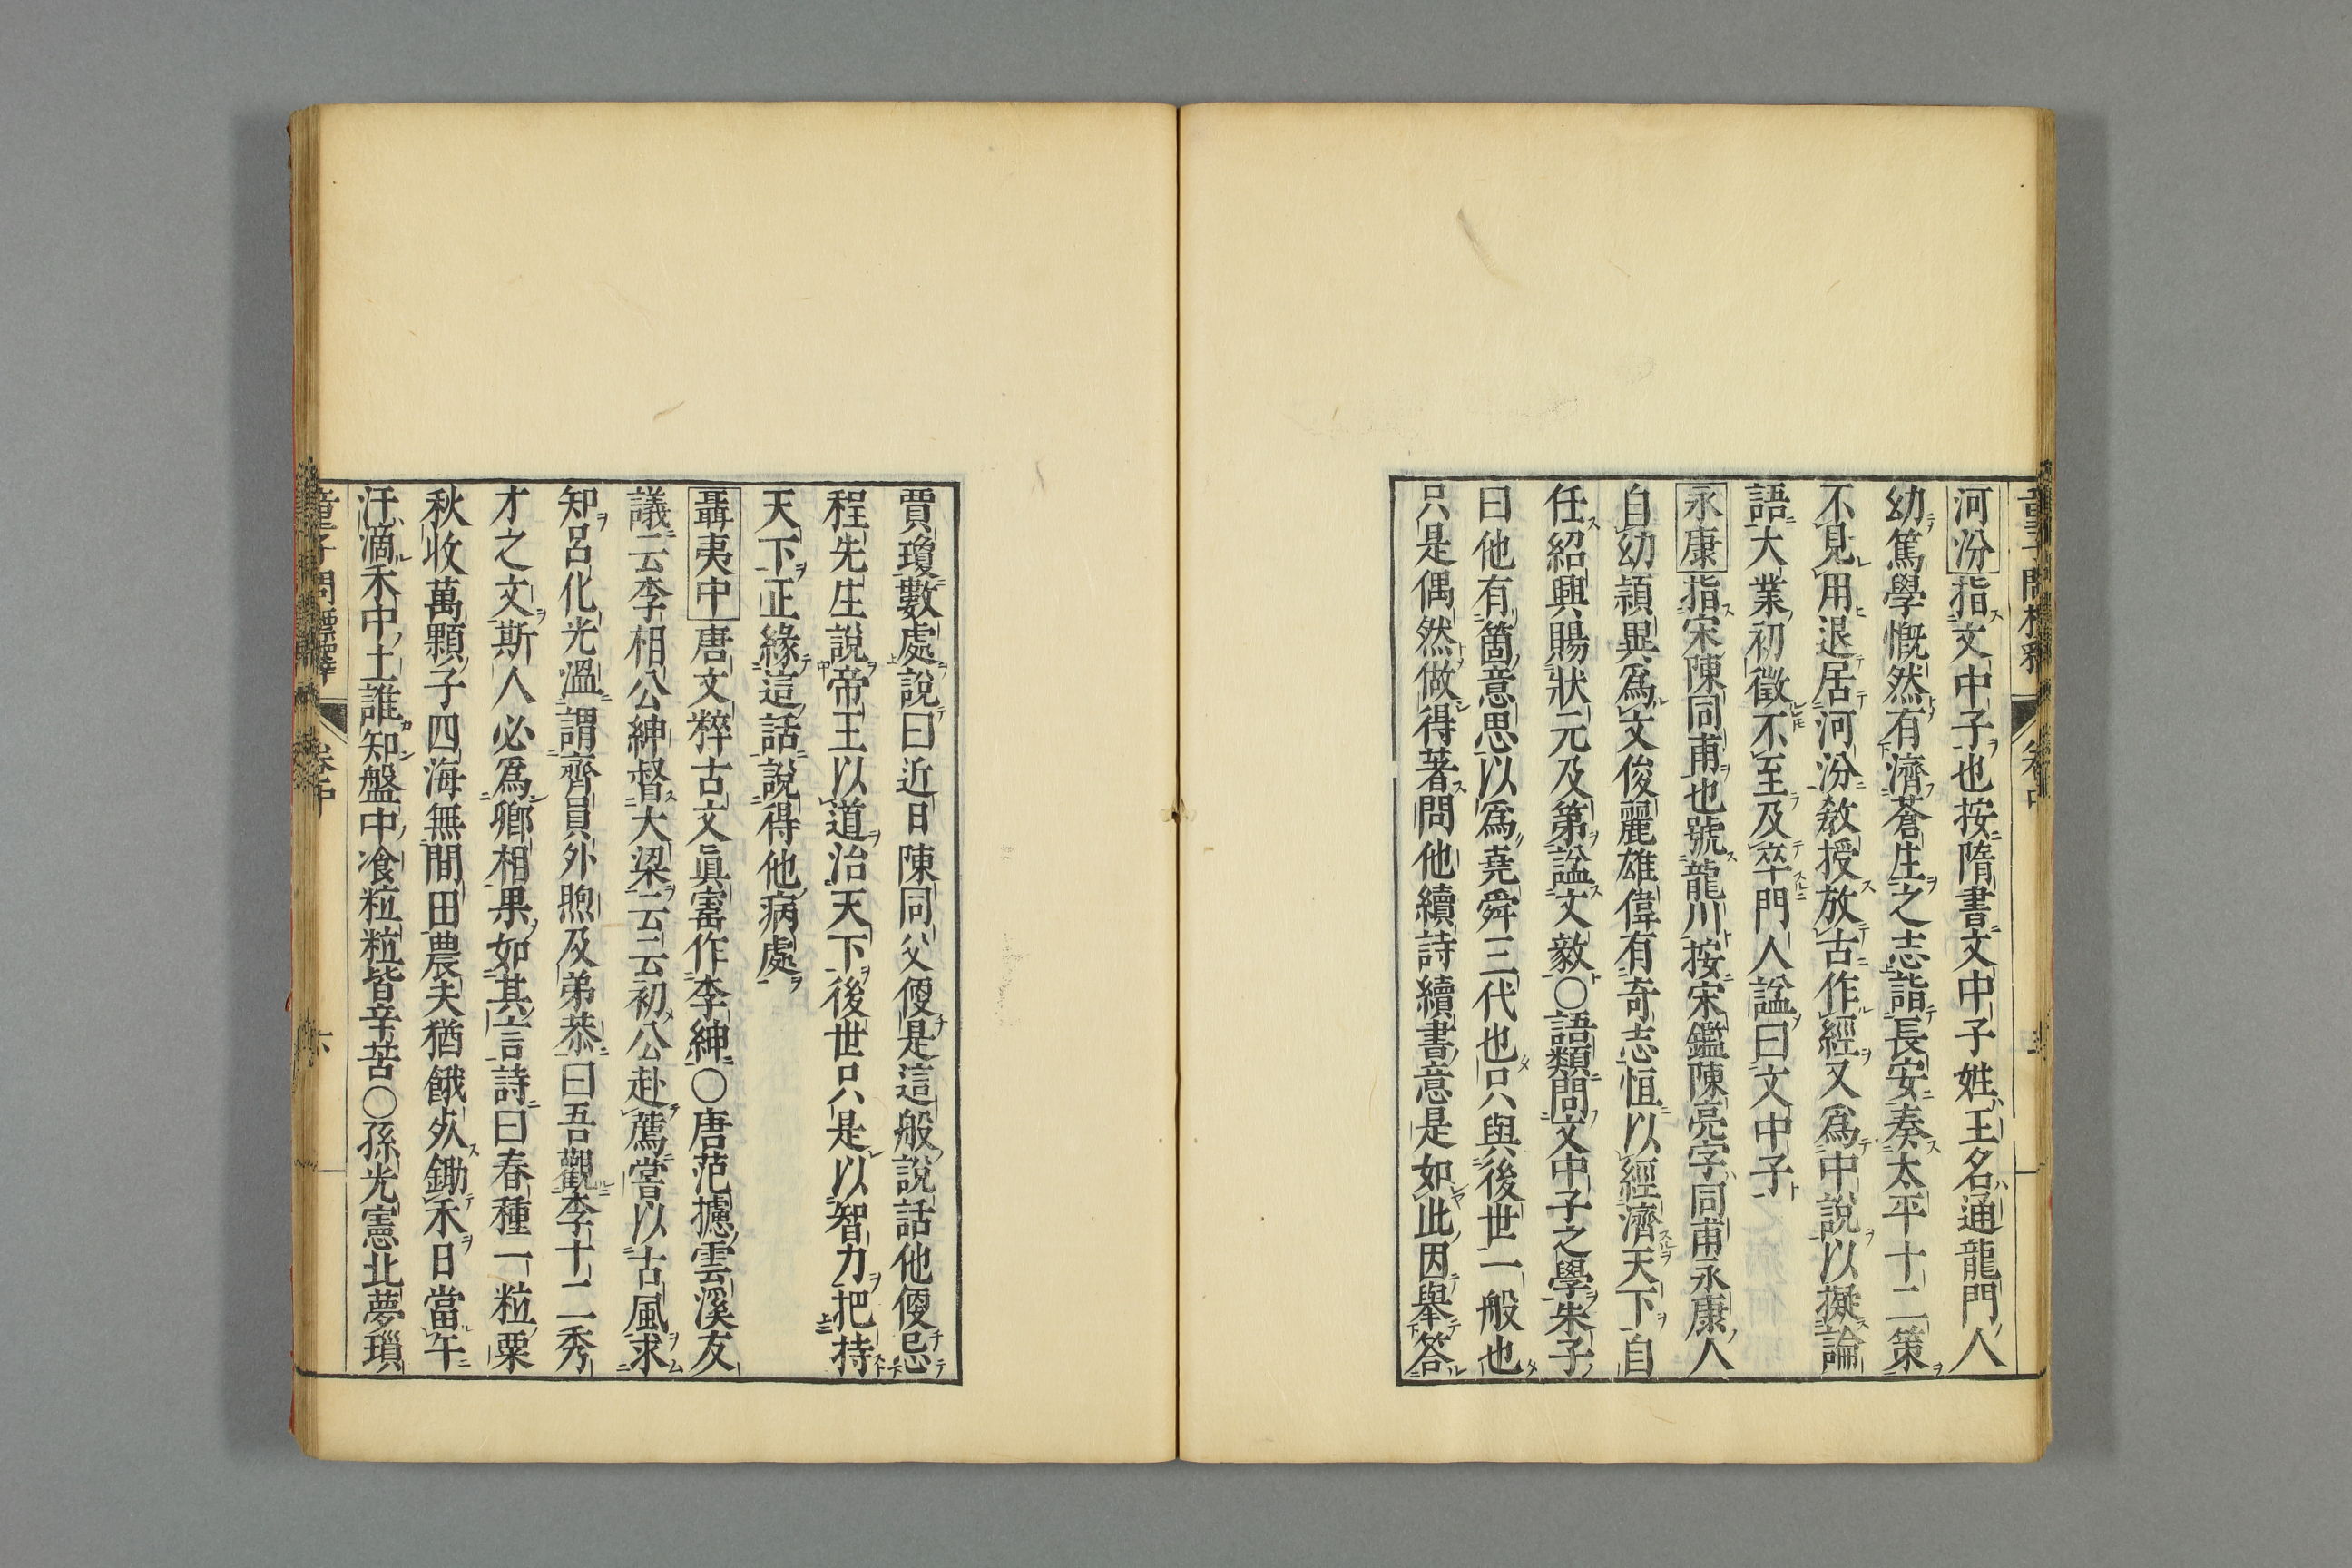 河汾指文中子也按隋書文中子姓王名通龍門人
幼篤學慨然有濟蒼生之志詣長安奏太平十二策
不見用退居河汾敎授放古作經又爲中說以擬論
語大業初徵不至及卒門人諡曰文中子
永康指宋陳同甫也號龍川按宋鑑陳亮字同甫永康人
自幼頴異爲文俊麗雄偉有奇志恒以經濟天下自
任紹興賜狀元及第諡文毅○語類問文中子之學朱子
曰他有箇意思以爲堯舜三代也只與後世一般也
只是偶然做得著問他續詩續書意是如此因舉答
賈瓊數處說曰近日陳同父便是這般說話他便忌
程先生說帝王以道治天下後世只是以智力把持
天下正緣這話說得他病處
聶夷中唐文粹古文眞寳作李紳○唐范攄雲溪友
議云李相公紳督大梁云云初公赴薦嘗以古風求
知呂化光溫謂齊員外煦及弟恭曰吾觀李十二秀
才之文斯人必爲卿相果如其言詩曰春種一粒粟
秋收萬顆子四海無閒田農夫猶餓死鋤禾日當午
汗滴禾中土誰知盤中飡粒粒皆辛苦○孫光憲北夢瑣
童子問標釋 卷中 六